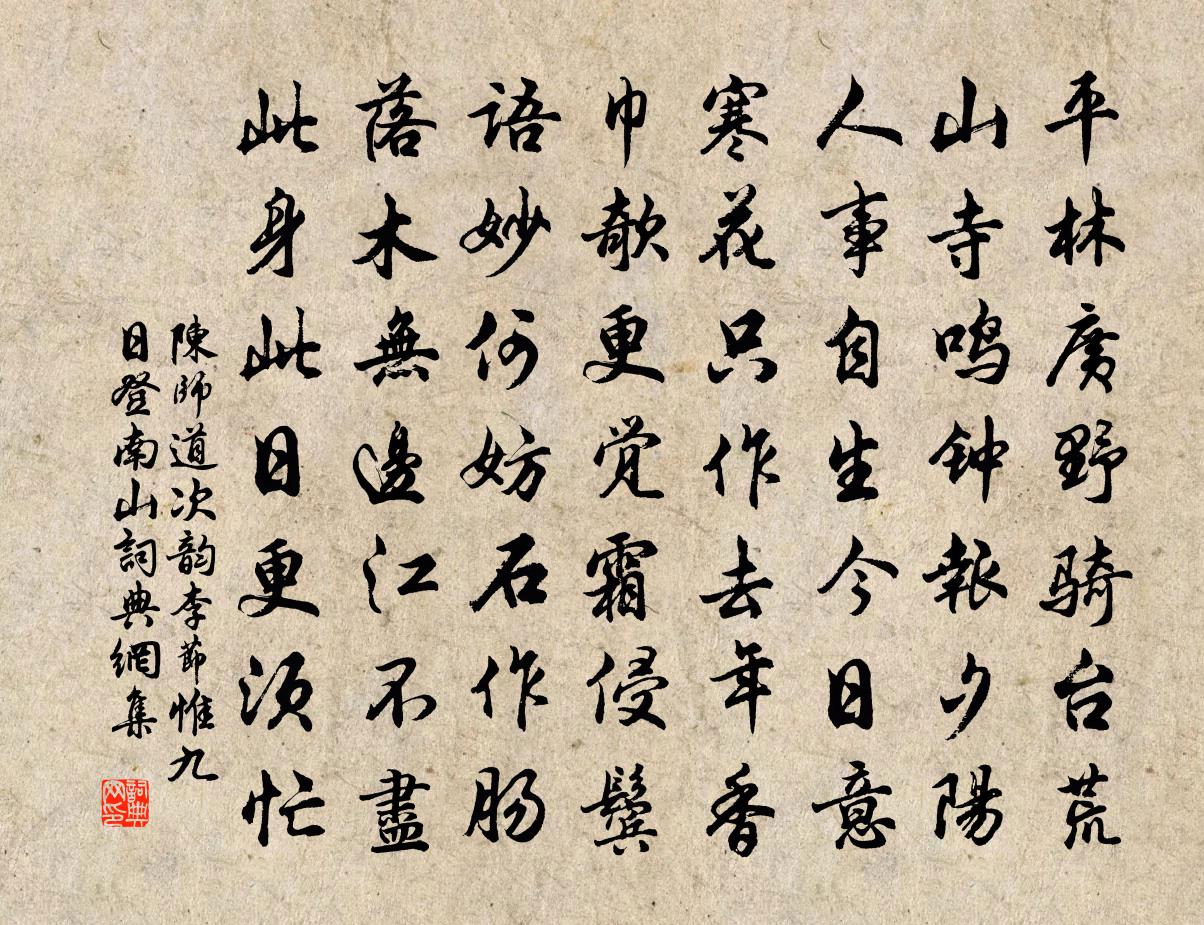 平林廣野骑台荒
山寺鸣钟報夕陽
人事自生今日意
寒花只作去年香
巾欹更觉霜侵鬓
語妙何妨石作肠
落木無邊江不盡
此身此日更须忙
陳師道次韵李節惟九
日登南山詞典網集
詞典
网印